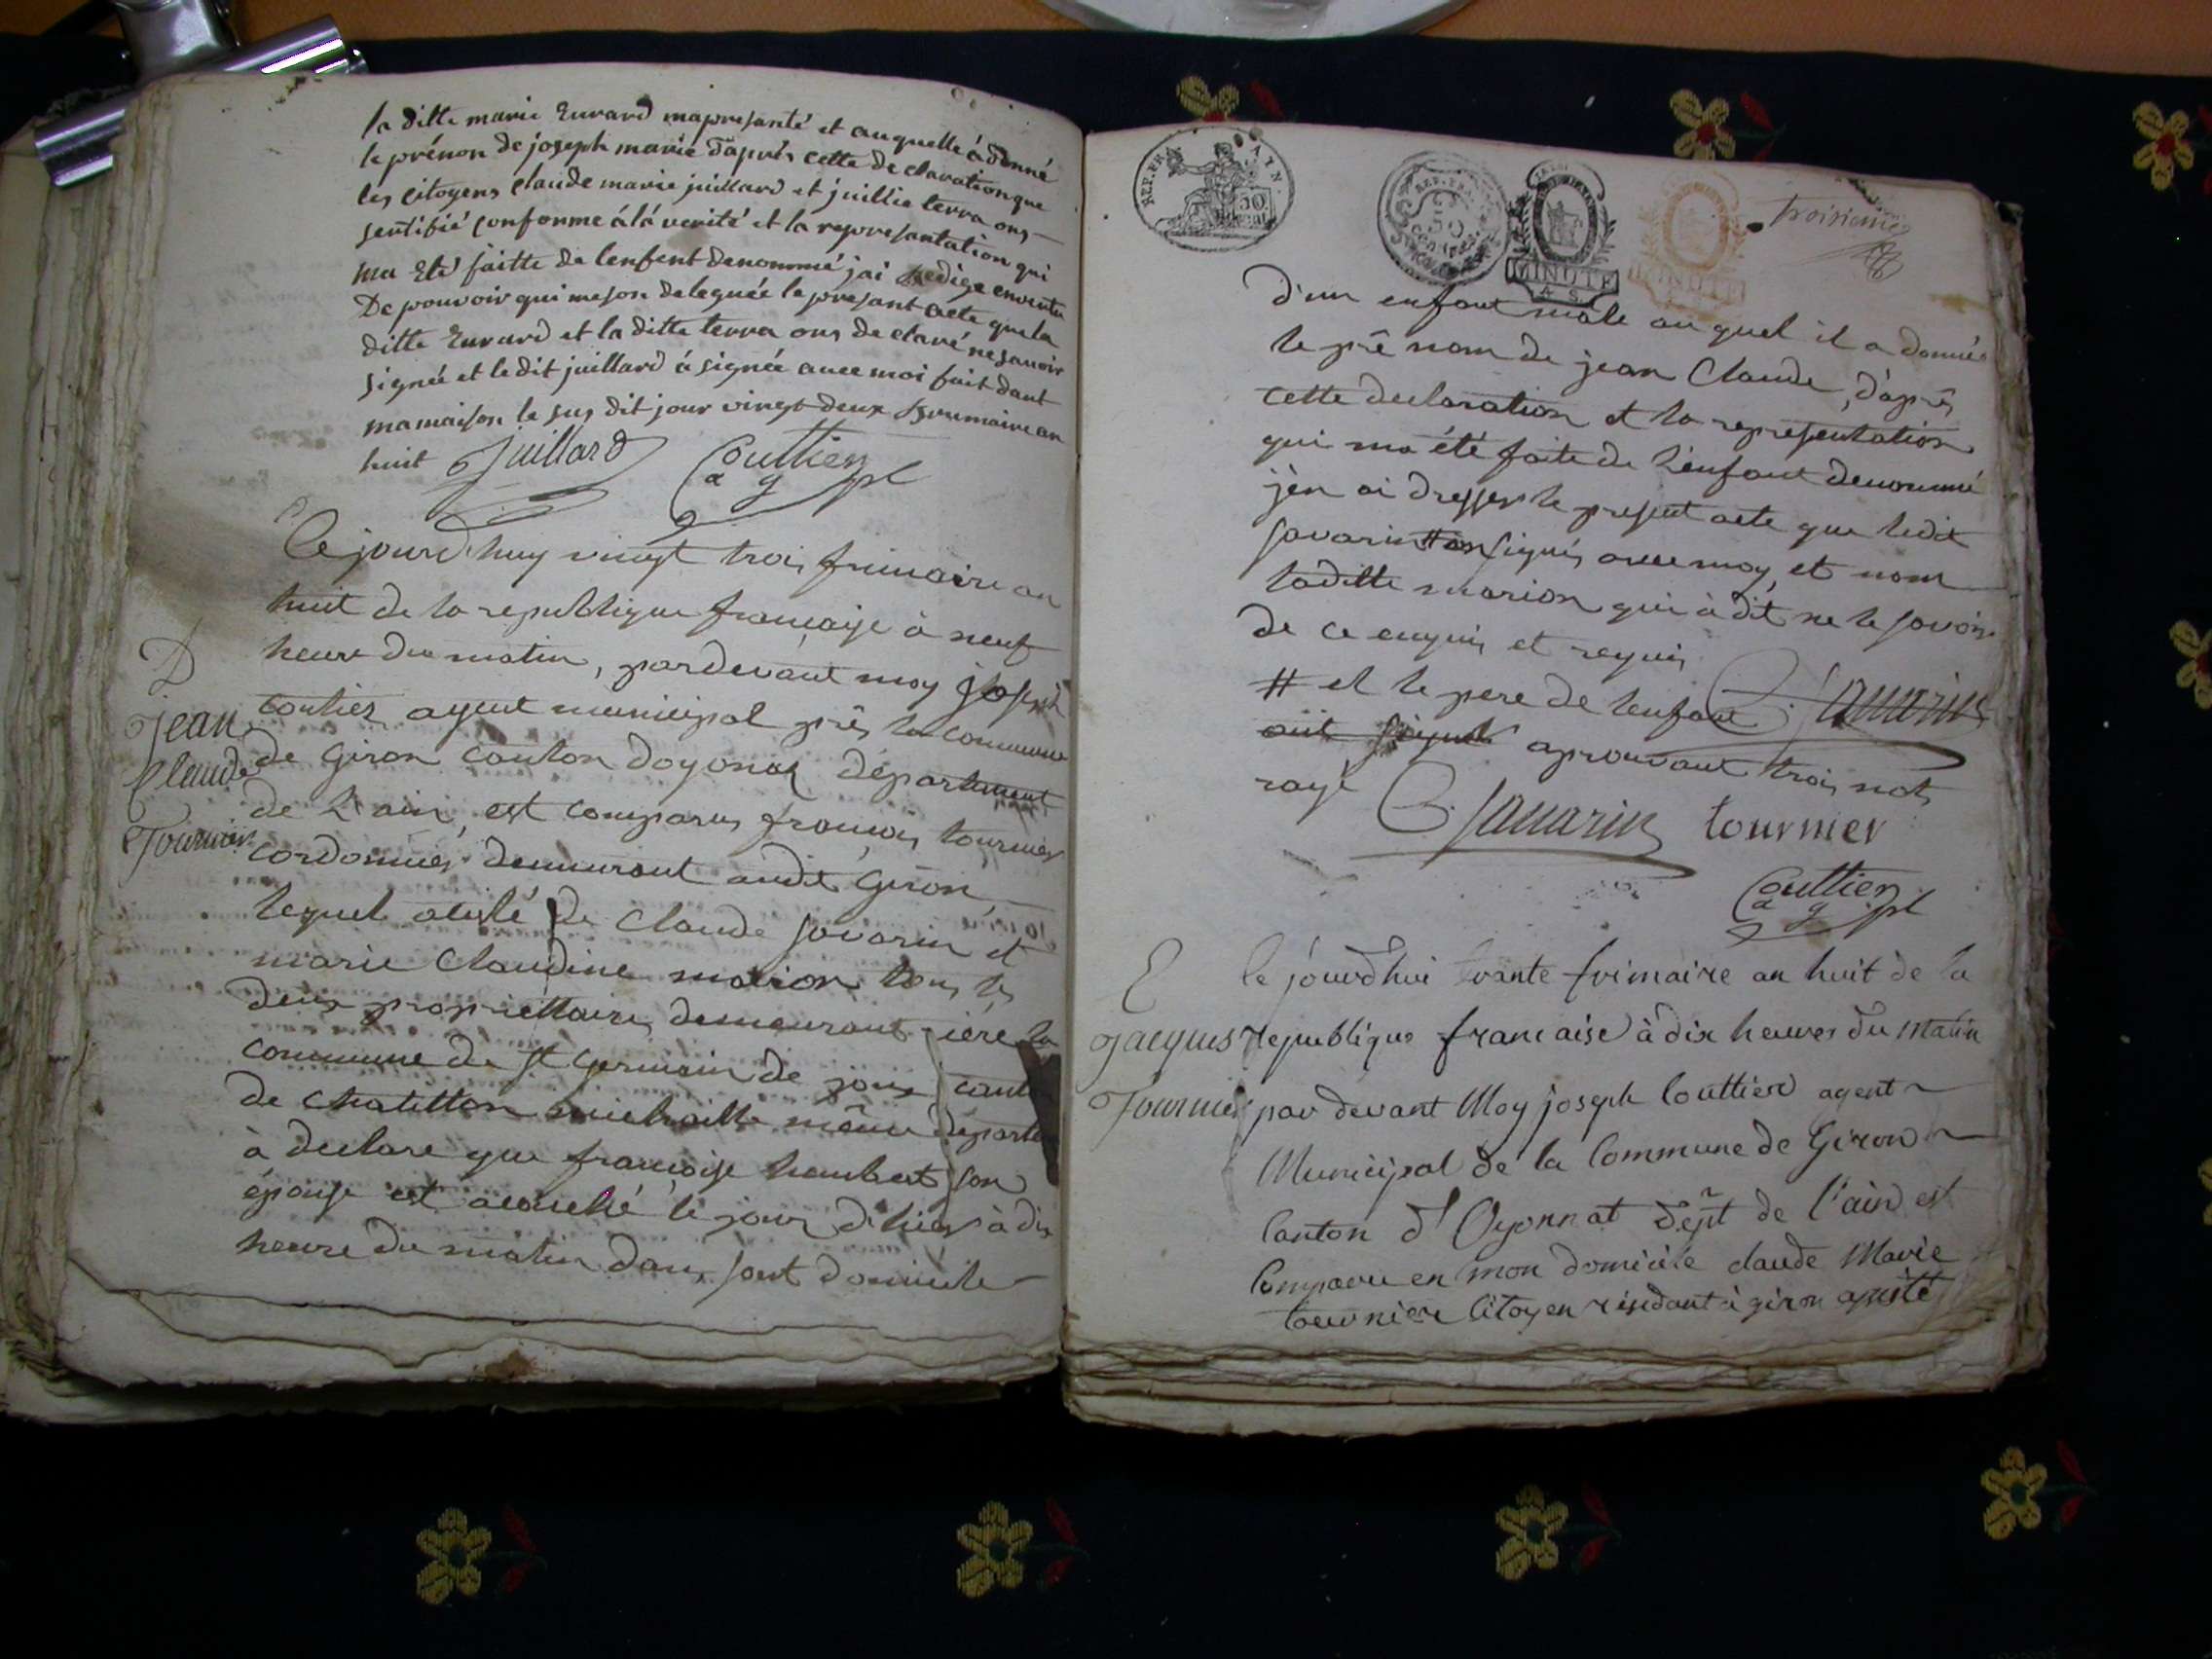 la ditte marie Euvard mapresanté et auquelle á donné
le prénon de joseph marie d'aprés cette de claration que
les citoyens claude marie juillard et juillie terra ons
sertifié conforme á lá verité et la represantation qui
ma Eté faitte de lenfent denommé jai redigé envertu
De pouvoir qui meson deleguée le presant acte que la
ditte Euvard et la ditte terra ons de claré ne savoir
signée et le dit juillard á signée avec moi fait dant
ma maison le sus dit jour vingt deux Brumaire an
huit Juillard Couttier
a g pl
Cejourd'huy vingt trois frimaire an
huit de la republique françaisse à neuf
heure du matin, pardevant moy joseph
coutier agent municipal prés la commune
de Giron canton doyonax département
de L'ain, est comparus françois tournier
cordonnier demeurant audit Giron,
lequel acisté de Claude savarin et
marie Claudine marion tous les
deux propriettaires demeurant riére la
commune de st Germain de joux cant
de chatillon michaille même départe
à declare que françoise humbert son
épouse est acouché le jour d'hier à dix
heure du matin dans sont domicile
D
Jean
Claude
Tournier
REP. FRA. 50 CENT.
REP. FRA.
50
CENTIMES
MINUTE
A. S.
MINUTE
troisieme
d'un enfant mâle auquel il a donnée
le prê nom de jean Claude, d'aprés
cette declaration et la representation
qui ma été faite de L'enfant denommé
j'en ai dresser le present acte que ledit
savarin # on signés avec moy, et nom
laditte marion qui à dit ne le savoir
de ce enquis et requis
# et le pere de lenfant C. Savarin
ont signé aprouvant trois mots
rayé C. Savarin tournier
Couttier
a g pl
E
Jacques
Tournier
le jourd'hui trante frimaire an huit de la
republique francaise à dix heures du Matin
par devant Moy joseph Couttier agent
Municipal de la Commune de Giron
Canton d'Oyonnat dept de l'ain est
Comparu en mon domicile claude Marie
tournier Citoyen residant à giron assisté